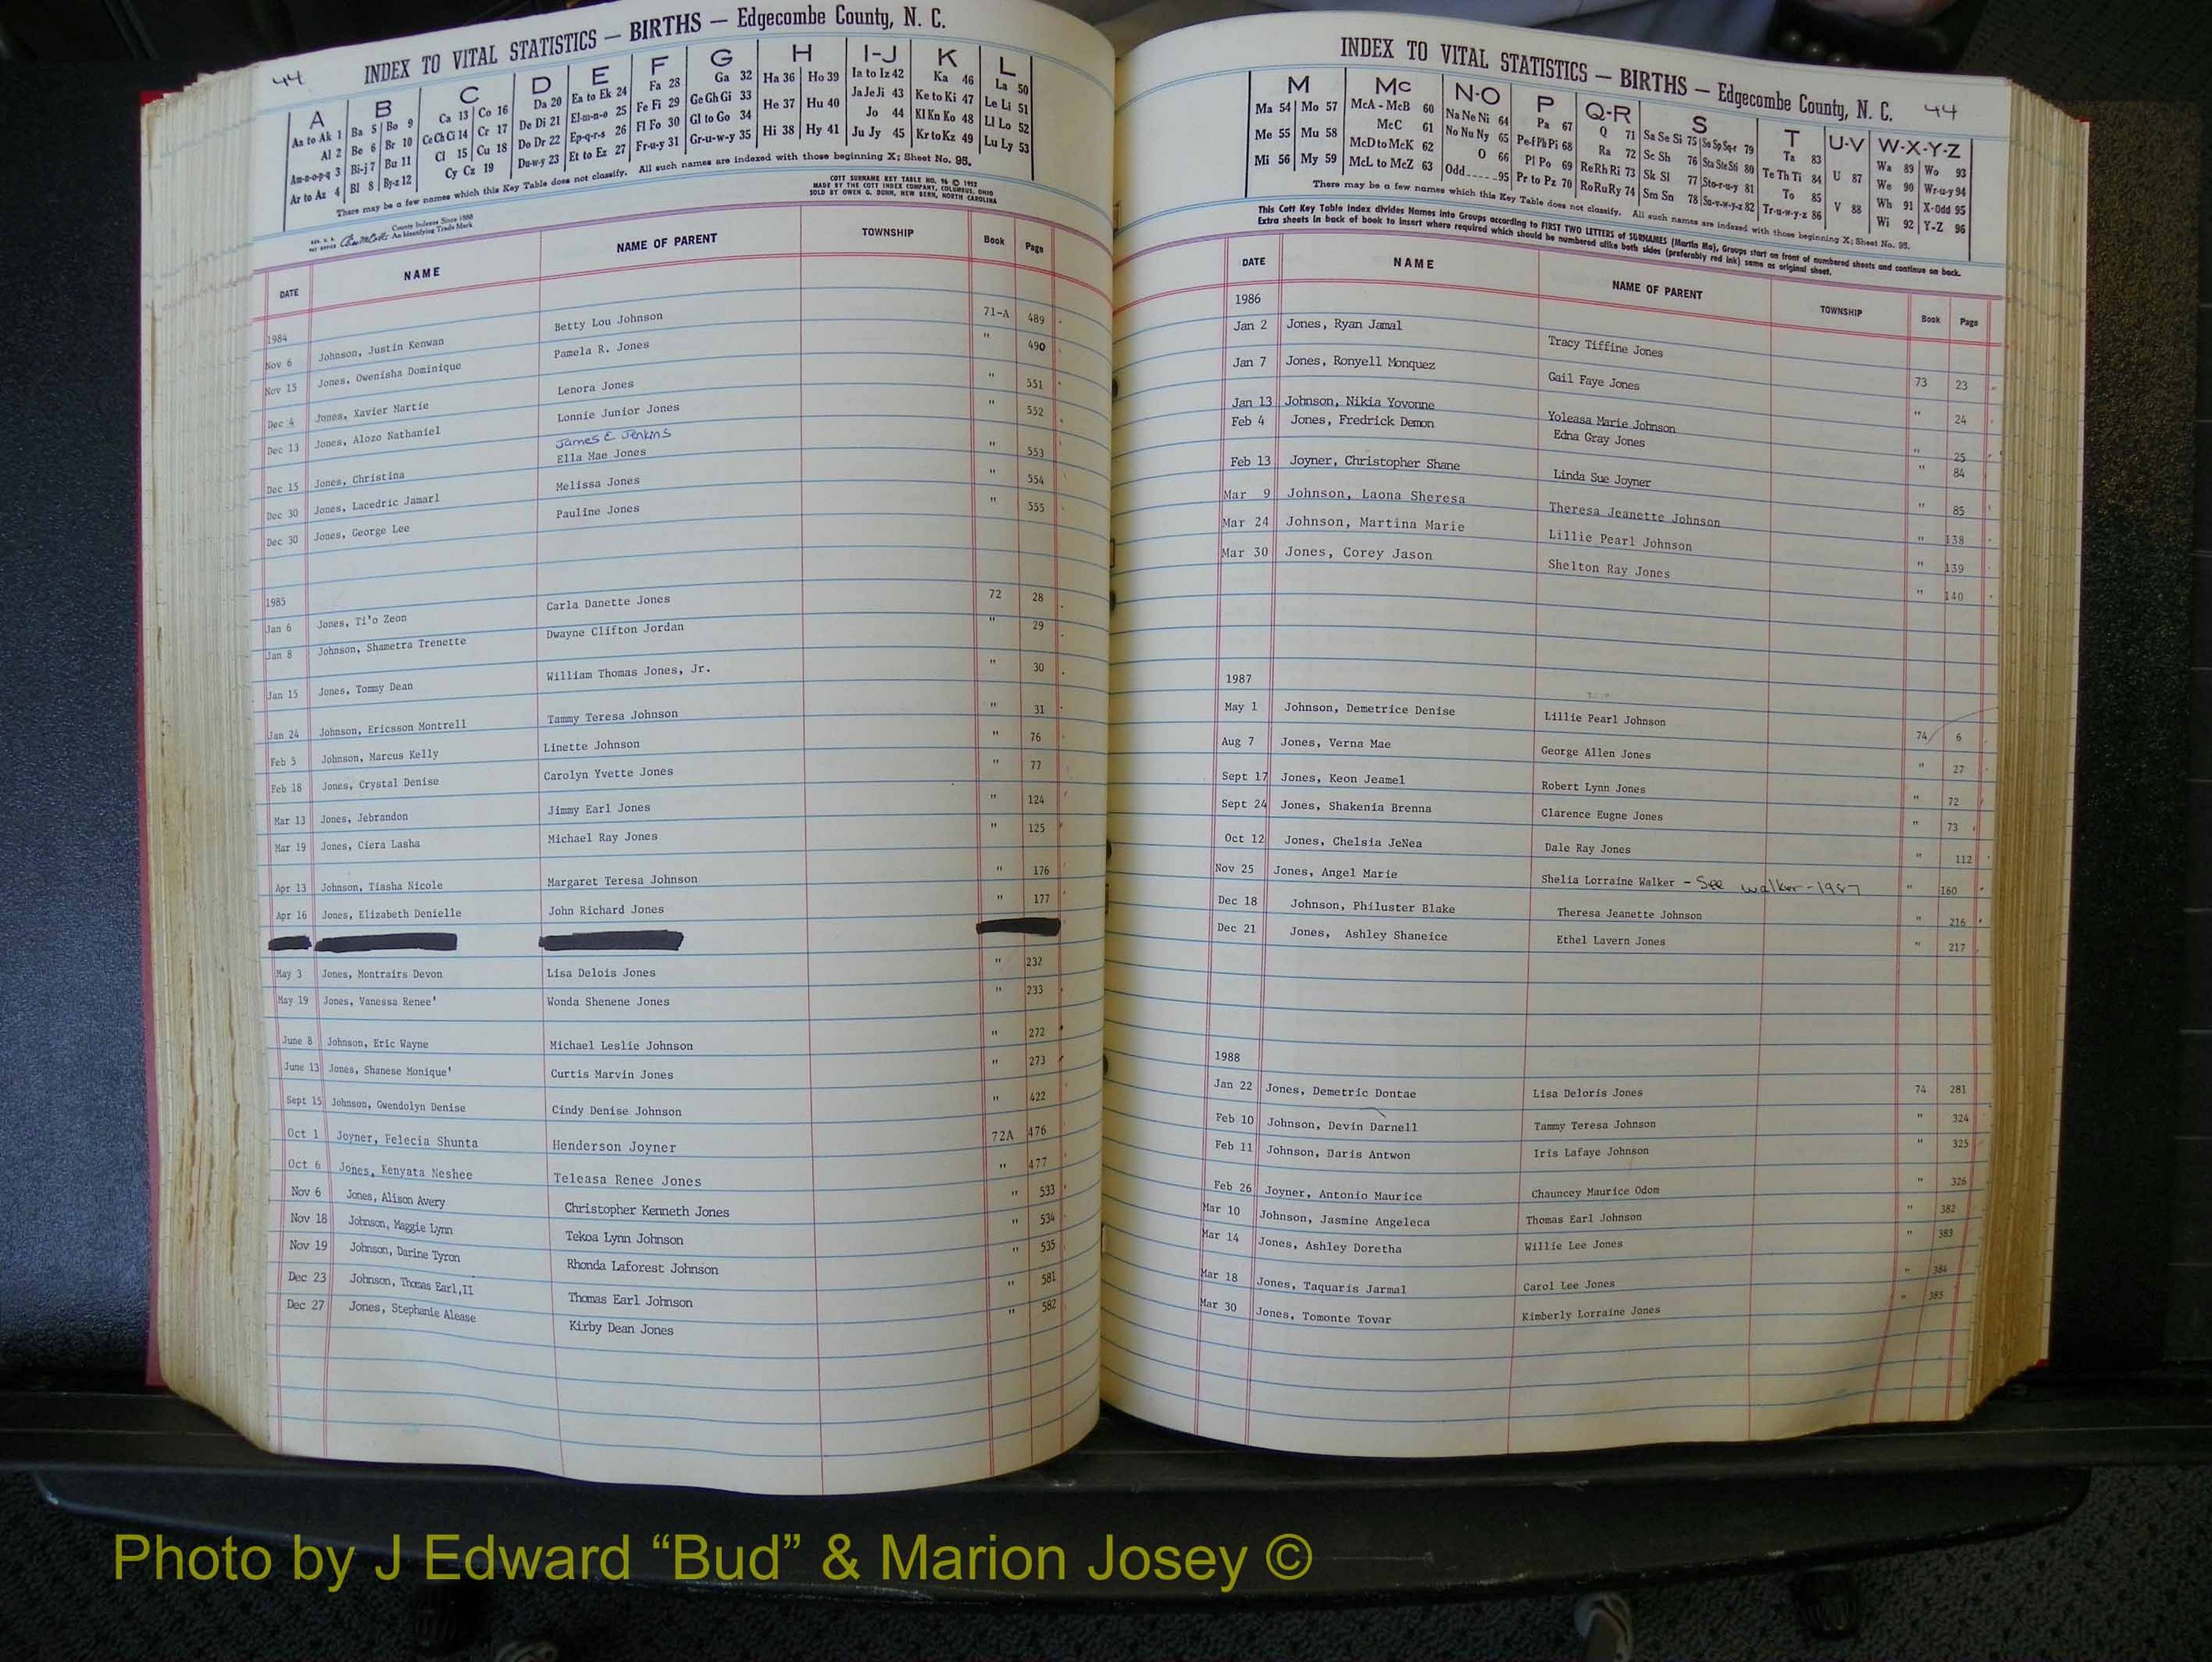 44
INDEX TO VITAL STATISTICS — BIRTHS — Edgecombe County, N. C.
A B C D E F G H I-J K L
Aa to Ak 1 Ba 5 Bo 9 Ca 13 Co 16 Da 20 Ea to Ek 24 Fa 28 Ga 32 Ha 36 Ho 39 Ia to Iz 42 Ka 46 La 50
Al 2 Be 6 Br 10 Ce Ch Ci 14 Cr 17 De Di 21 El-m-n-o 25 Fe Fi 29 Ge Gh Gi 33 He 37 Hu 40 Ja Je Ji 43 Ke to Ki 47 Le Li 51
Am-n-o-p-q 3 Bi-j 7 Bu 11 Cl 15 Cu 18 Do Dr 22 Ep-q-r-s 26 Fl Fo 30 Gl to Go 34 Hi 38 Hy 41 Jo 44 Kl Kn Ko 48 Ll Lo 52
Ar to Az 4 Bl 8 By-z 12 Cy Cz 19 Du-w-y 23 Et to Ez 27 Fr-u-y 31 Gr-u-w-y 35 Ju Jy 45 Kr to Kz 49 Lu Ly 53
There may be a few names which this Key Table does not classify. All such names are indexed with those beginning X; Sheet No. 95.
COTT SURNAME KEY TABLE NO. 96 © 1952
MADE BY THE COTT INDEX COMPANY, COLUMBUS, OHIO
SOLD BY OWEN G. DUNN, NEW BERN, NORTH CAROLINA
County Indexes Since 1888
An Identifying Trade Mark
DATE NAME NAME OF PARENT TOWNSHIP Book Page
1984
Nov 6 Johnson, Justin Kenwan Betty Lou Johnson 71-A 489
Nov 15 Jones, Owenisha Dominique Pamela R. Jones " 490
Dec 4 Jones, Xavier Martie Lenora Jones " 551
Dec 13 Jones, Alozo Nathaniel Lonnie Junior Jones " 552
James E. Jenkins
Dec 15 Jones, Christina Ella Mae Jones " 553
Dec 30 Jones, Lacedric Jamarl Melissa Jones " 554
Dec 30 Jones, George Lee Pauline Jones " 555
1985
Jan 6 Jones, Ti'o Zeon Carla Danette Jones 72 28
Jan 8 Johnson, Shametra Trenette Dwayne Clifton Jordan " 29
Jan 15 Jones, Tommy Dean William Thomas Jones, Jr. " 30
Jan 24 Johnson, Ericsson Montrell Tammy Teresa Johnson " 31
Feb 5 Johnson, Marcus Kelly Linette Johnson " 76
Feb 18 Jones, Crystal Denise Carolyn Yvette Jones " 77
Mar 13 Jones, Jebrandon Jimmy Earl Jones " 124
Mar 19 Jones, Ciera Lasha Michael Ray Jones " 125
Apr 13 Johnson, Tiasha Nicole Margaret Teresa Johnson " 176
Apr 16 Jones, Elizabeth Denielle John Richard Jones " 177
May 3 Jones, Montrairs Devon Lisa Delois Jones " 232
May 19 Jones, Vanessa Renee' Wonda Shenene Jones " 233
June 8 Johnson, Eric Wayne Michael Leslie Johnson " 272
June 13 Jones, Shanese Monique' Curtis Marvin Jones " 273
Sept 15 Johnson, Gwendolyn Denise Cindy Denise Johnson " 422
Oct 1 Joyner, Felecia Shunta Henderson Joyner 72A 476
Oct 6 Jones, Kenyata Neshee Teleasa Renee Jones " 477
Nov 6 Jones, Alison Avery Christopher Kenneth Jones " 533
Nov 18 Johnson, Maggie Lynn Tekoa Lynn Johnson " 534
Nov 19 Johnson, Darine Tyron Rhonda Laforest Johnson " 535
Dec 23 Johnson, Thomas Earl,II Thomas Earl Johnson " 581
Dec 27 Jones, Stephanie Alease Kirby Dean Jones " 582
INDEX TO VITAL STATISTICS — BIRTHS — Edgecombe County, N. C. 44
M Mc N-O P Q-R S T U-V W-X-Y-Z
Ma 54 Mo 57 McA - McB 60 Na Ne Ni 64 Pa 67 Q 71 Sa Se Si 75 So Sp Sq-r 79 Ta 83 U 87 Wa 89 Wo 93
Me 55 Mu 58 McC 61 No Nu Ny 65 Pe-f Ph Pi 68 Ra 72 Sc Sh 76 Sta Ste Sti 80 Te Th Ti 84 V 88 We 90 Wr-u-y 94
Mi 56 My 59 McD to McK 62 O 66 Pl Po 69 Re Rh Ri 73 Sk Sl 77 Sto-r-u-y 81 To 85 Wh 91 X-Odd 95
McL to McZ 63 Odd 95 Pr to Pz 70 Ro Ru Ry 74 Sm Sn 78 Su-v-w-y-z 82 Tr-u-w-y-z 86 Wi 92 Y-Z 96
There may be a few names which this Key Table does not classify. All such names are indexed with those beginning X; Sheet No. 95.
This Cott Key Table Index divides Names into Groups according to FIRST TWO LETTERS of SURNAMES (Martin Ma), Groups start on front of numbered sheets and continue on back.
Extra sheets in back of book to insert where required which should be numbered alike both sides (preferably red ink) same as original sheet.
DATE NAME NAME OF PARENT TOWNSHIP Book Page
1986
Jan 2 Jones, Ryan Jamal Tracy Tiffine Jones 73 23
Jan 7 Jones, Ronyell Monquez Gail Faye Jones " 24
Jan 13 Johnson, Nikia Yovonne Yoleasa Marie Johnson " 25
Feb 4 Jones, Fredrick Demon Edna Gray Jones " 84
Feb 13 Joyner, Christopher Shane Linda Sue Joyner " 85
Mar 9 Johnson, Laona Sheresa Theresa Jeanette Johnson " 138
Mar 24 Johnson, Martina Marie Lillie Pearl Johnson " 139
Mar 30 Jones, Corey Jason Shelton Ray Jones " 140
1987
May 1 Johnson, Demetrice Denise Lillie Pearl Johnson 74 6
Aug 7 Jones, Verna Mae George Allen Jones " 27
Sept 17 Jones, Keon Jeamel Robert Lynn Jones " 72
Sept 24 Jones, Shakenia Brenna Clarence Eugne Jones " 73
Oct 12 Jones, Chelsia JeNea Dale Ray Jones " 112
Nov 25 Jones, Angel Marie Shelia Lorraine Walker - See Walker - 1987 " 160
Dec 18 Johnson, Philuster Blake Theresa Jeanette Johnson " 216
Dec 21 Jones, Ashley Shaneice Ethel Lavern Jones " 217
1988
Jan 22 Jones, Demetric Dontae Lisa Deloris Jones 74 281
Feb 10 Johnson, Devin Darnell Tammy Teresa Johnson " 324
Feb 11 Johnson, Daris Antwon Iris Lafaye Johnson " 325
Feb 26 Joyner, Antonio Maurice Chauncey Maurice Odom " 326
Mar 10 Johnson, Jasmine Angeleca Thomas Earl Johnson " 382
Mar 14 Jones, Ashley Doretha Willie Lee Jones " 383
Mar 18 Jones, Taquaris Jarmal Carol Lee Jones " 384
Mar 30 Jones, Tomonte Tovar Kimberly Lorraine Jones " 385
Photo by J Edward “Bud” & Marion Josey ©